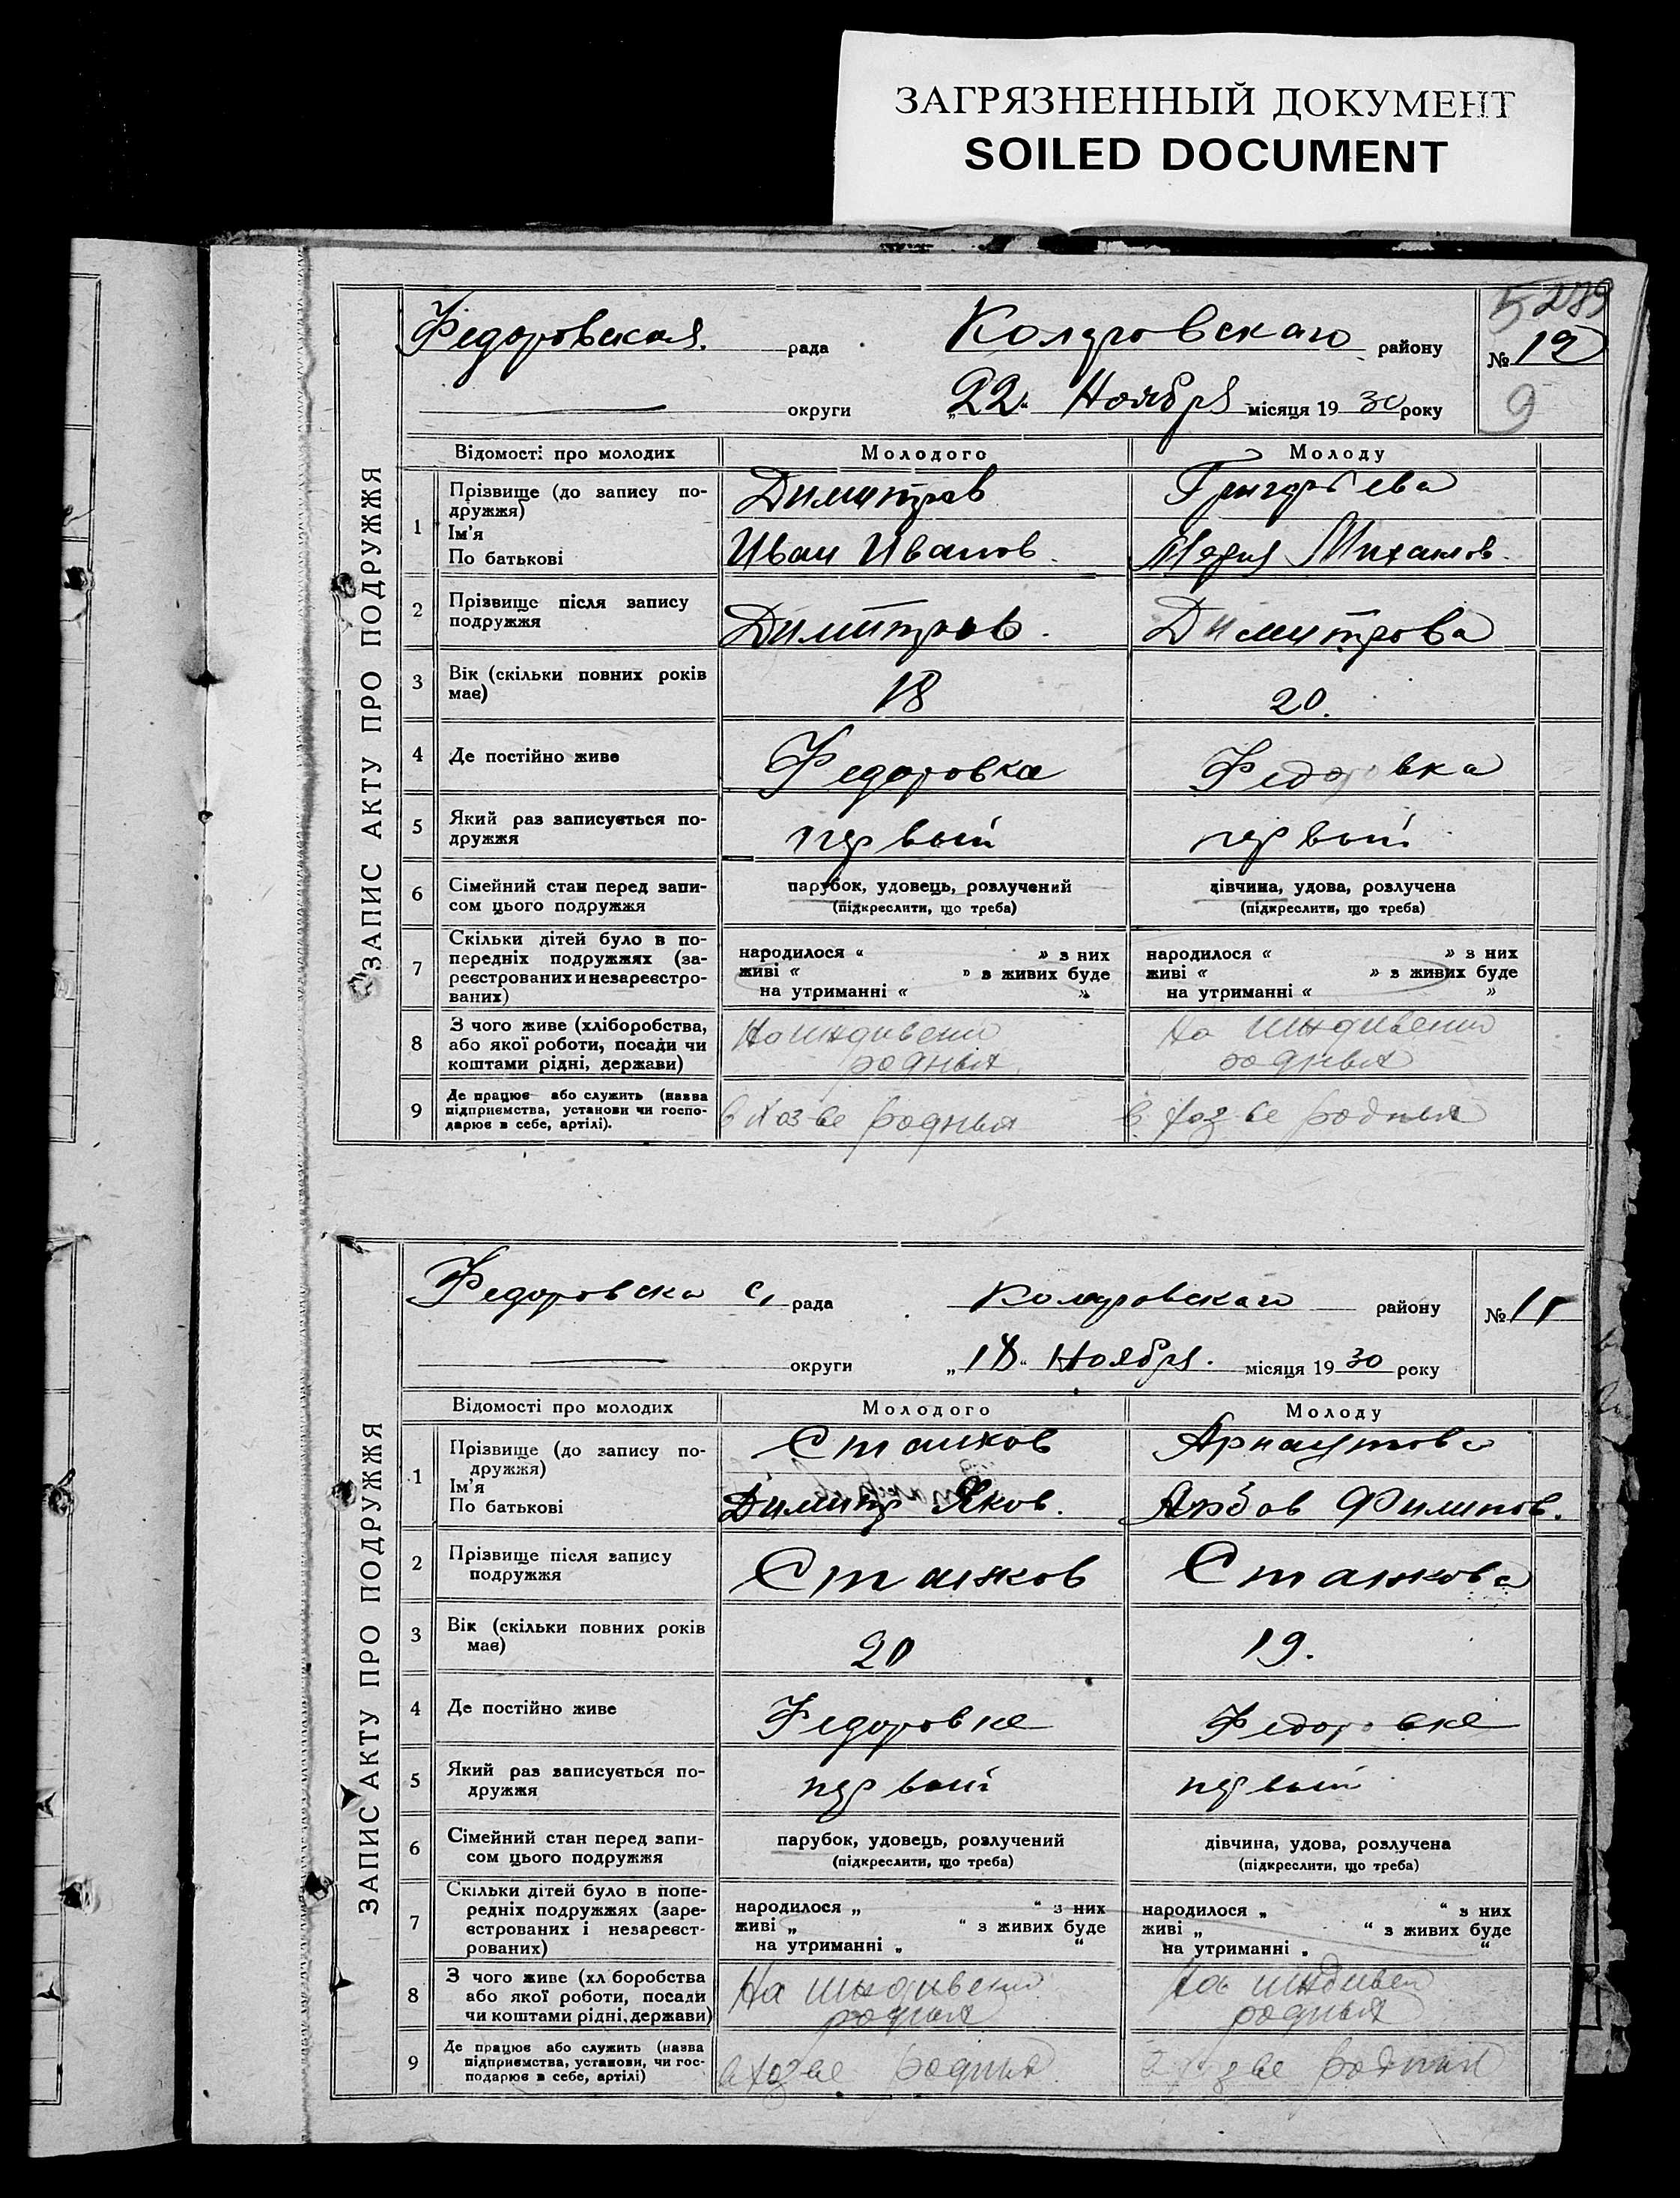 ЗАГРЯЗНЕННЫЙ ДОКУМЕНТ
SOILED DOCUMENT
5 289
ЗАПИС АКТУ ПРО ПОДРУЖЖЯ
Федоровская рада Коларовскаго району № 12
округи „22“ Ноября місяця 1930 року 9
Відомості про молодих Молодого Молоду
1 Прізвище (до запису по-
дружжя) Димитров Григорьева
Ім'я
По батькові Иван Иванов. Мария Михайлов.
2 Прізвище після запису
подружжя Димитров. Димитрова
3 Вік (скільки повних років
має) 18 20.
4 Де постійно живе Федоровка Федоровка
5 Який раз записується по-
дружжя первый первый
6 Сімейний стан перед запи-
сом цього подружжя парубок, удовець, розлучений дівчина, удова, розлучена
(підкреслити, що треба) (підкреслити, що треба)
7 Скільки дітей було в по-
передніх подружжях (за-
реєстрованих и незареєстро-
ваних)
народилося « » з них народилося « » з них
живі « » з живих буде живі « » з живих буде
на утриманні « » на утриманні « »
8 З чого живе (хліборобства,
або якої роботи, посади чи
коштами рідні, держави)
На индивении На индивении
родных родных
9 Де працює або служить (назва
підприємства, установи чи госпо-
дарює в себе, артілі).
в хоз-ве родных в хоз-ве родных
ЗАПИС АКТУ ПРО ПОДРУЖЖЯ
Федоровска с, рада Коларовскаго району № 11
округи „18“ Ноября. місяця 1930 року
Відомості про молодих Молодого Молоду
1 Прізвище (до запису по-
дружжя) Станков Арнаутова
Ім'я
По батькові Димитр Яков. Филипов.
2 Прізвище після запису
подружжя Станков Станкова
3 Вік (скільки повних років
має) 20 19.
4 Де постійно живе Федоровке Федоровке
5 Який раз записується по-
дружжя первый первый
6 Сімейний стан перед запи-
сом цього подружжя парубок, удовець, розлучений дівчина, удова, розлучена
(підкреслити, що треба) (підкреслити, що треба)
7 Скільки дітей було в попе-
редніх подружжях (заре-
єстрованих і незареєст-
рованих)
народилося „ “ з них народилося „ “ з них
живі „ “ з живих буде живі „ “ з живих буде
на утриманні „ “ на утриманні „ “
8 З чого живе (хл боробства
або якої роботи, посади
чи коштами рідні, держави)
На индивении На индивен
родных родных
9 Де працює або служить (назва
підприємства, установи, чи гос-
подарює в себе, артілі)
в хозве родных родных